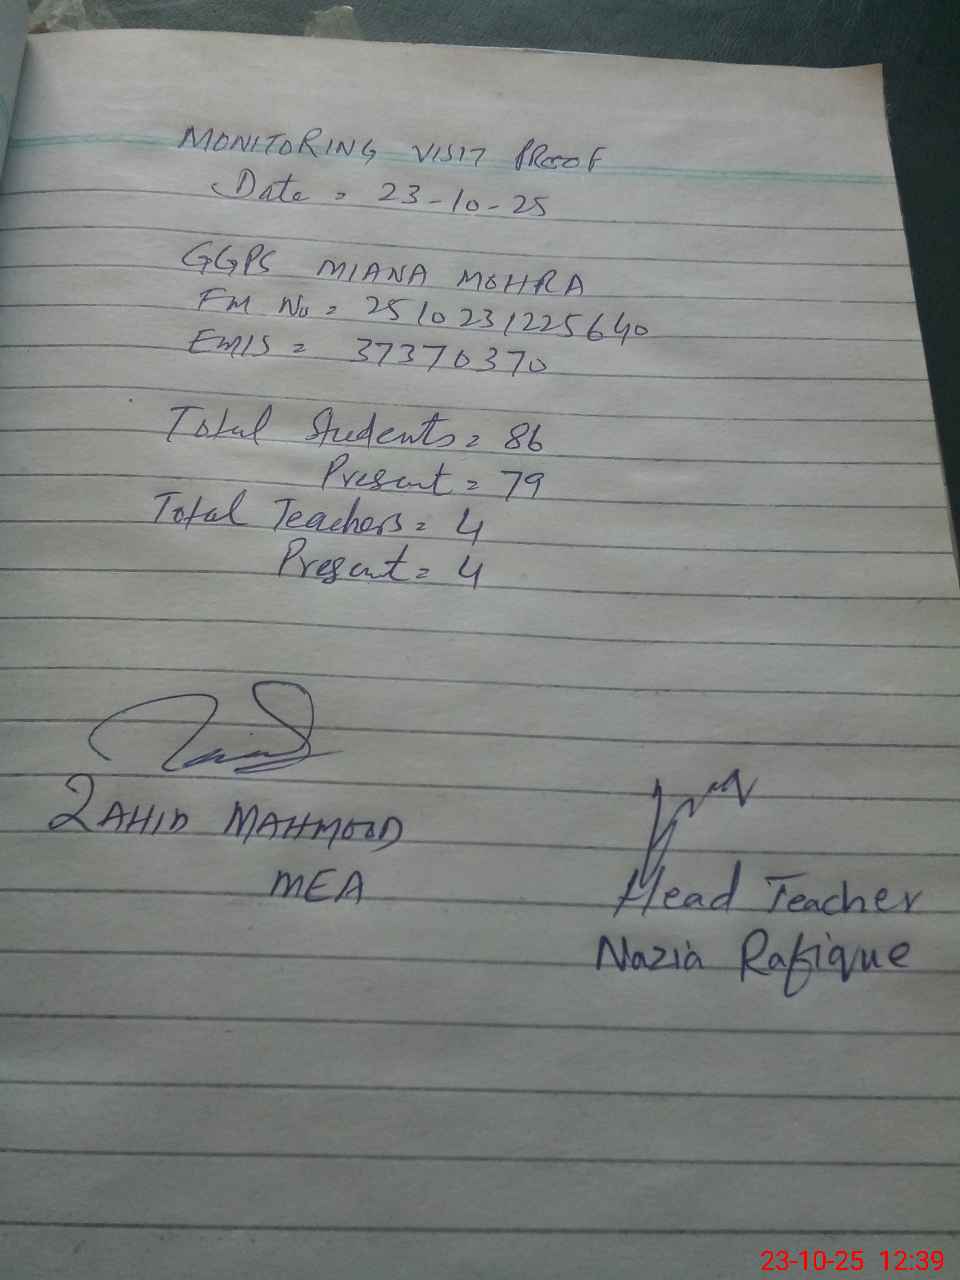 MONITORING VISIT PROOF
Date = 23-10-25
GGPS MIANA MOHRA
FM No = 2510231225640
EMIS = 37370370
Total Students = 86
Present = 79
Total Teachers = 4
Present = 4
ZAHID MAHMOOD
MEA
Head Teacher
Nazia Rafique
23-10-25 12:39